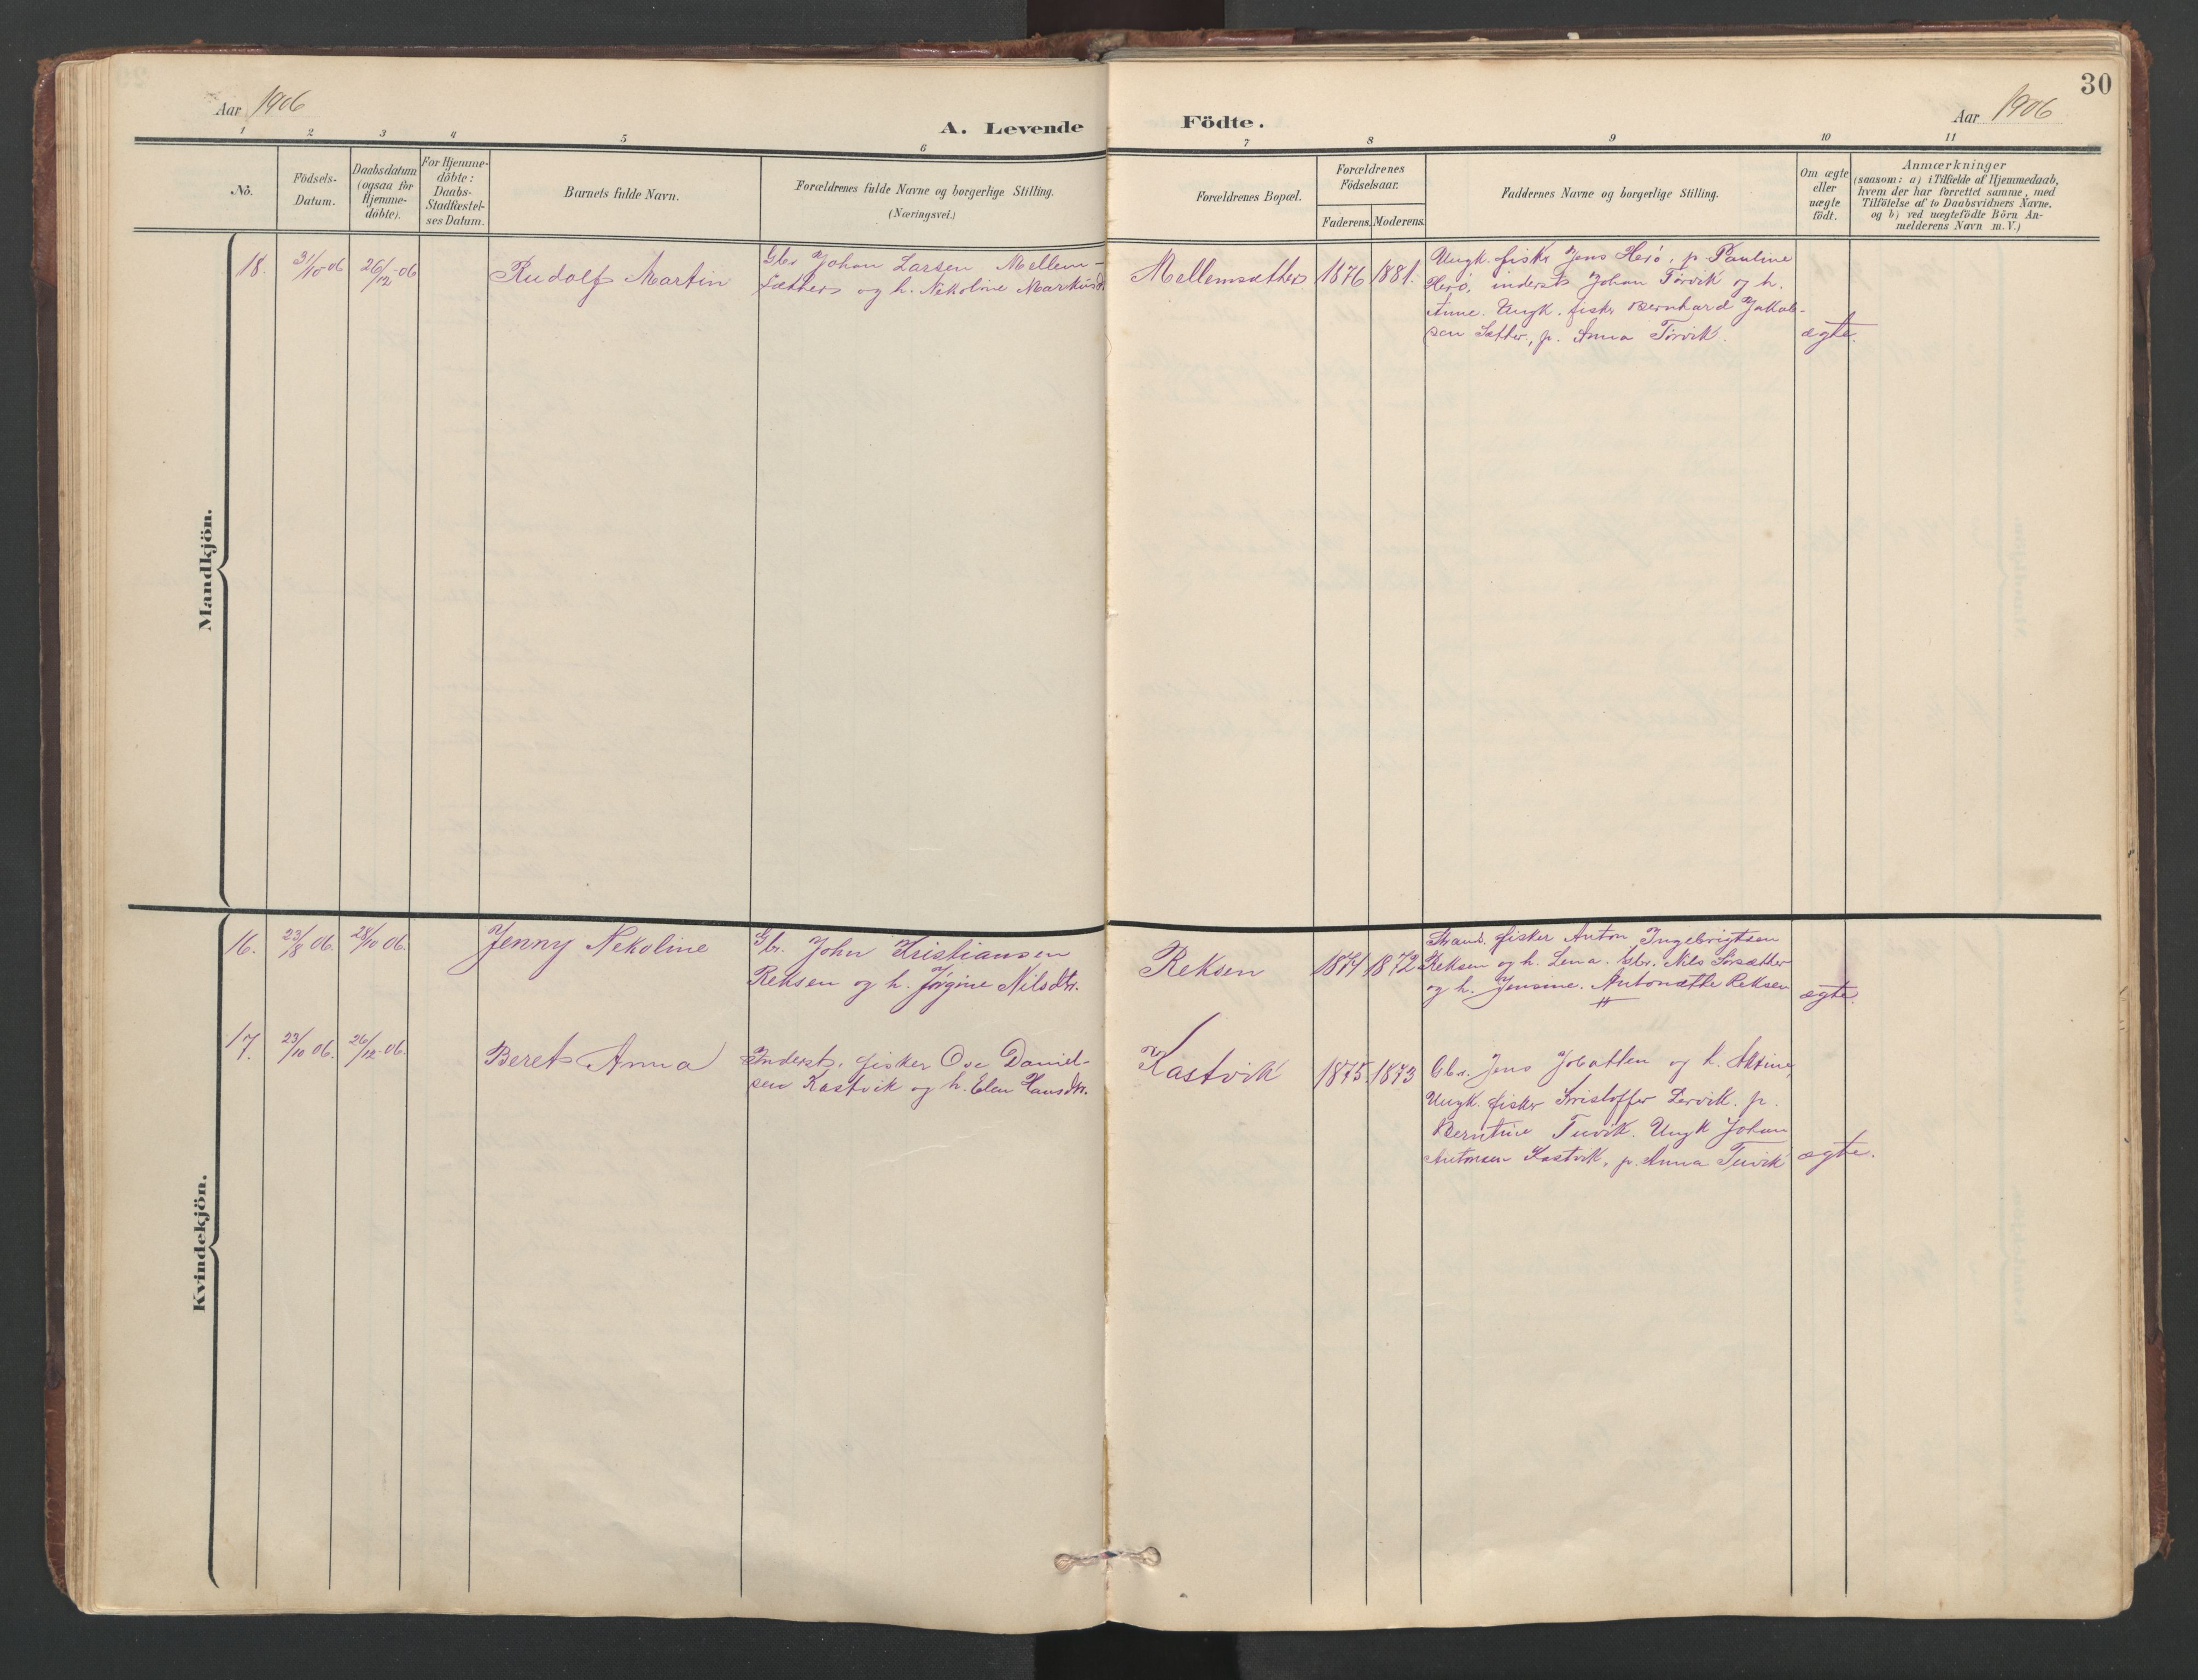 30
Aar 1906
A. Levende Födte.
Aar 1906
1 2 3 4 5 6 7 8 9 10 11
No.
Födsels-Datum.
Daabsdatum (ogsaa for Hjemme-döbte).
For Hjemme-döbte: Daabs-Stadfæstel-ses Datum.
Barnets fulde Navn.
Forældrenes fulde Navne og borgerlige Stilling.
(Næringsvei.)
Forældrenes Bopæl.
Forældrenes Födselsaar.
Faderens. Moderens.
Faddernes Navne og borgerlige Stilling.
Om ægte eller uægte födt.
Anmærkninger
(saasom: a) i Tilfælde af Hjemmedaab,
hvem der har forrettet samme, med
Tilföielse af to Daabsvidners Navne.
og b) ved uægtefödte Börn An-
melderens Navn m. V.)
Mandkjön.
18. 31/10-06 26/12-06 Rudolf Martin
Gbr Johan Larsen Mellem-
sætter og h. Nikoline Markusd
Mellemsætter 1876 1881.
Ungk. fisker Jens Herö, p. Pauline
Herö, inderst Johan Törvik og h.
Anne. Ungk. fisker Bernhard Jakob-
sen Sætter, p. Anna Törvik.
ægte.
Kvindekjön.
16. 23/8 06. 28/10 06. Jenny Nekoline
Gbr. John Kristiansen
Reksen og h. Jörgine Nilsdtr.
Reksen 1874 1872
Strand. fisker Anton Ingebrigtsen
Reksen og h. Lena. Gbr. Nils Sörsætter
og h. Jensine. Antonette Reksen
ægte.
17. 23/10 06. 26/12-06. Beret Anna
Inderst, fisker Ove Daniel-
sen Kastvik og h. Elen Hansdtr.
Kastvik 1875. 1873
Gbr. Jens Jobotten og h.
Ungk. fisker Kristoffer Lervik. p.
Berntine Tuvik. Ungk Johan
Antonsen Kastvik, p. Anna Tuvik
ægte.